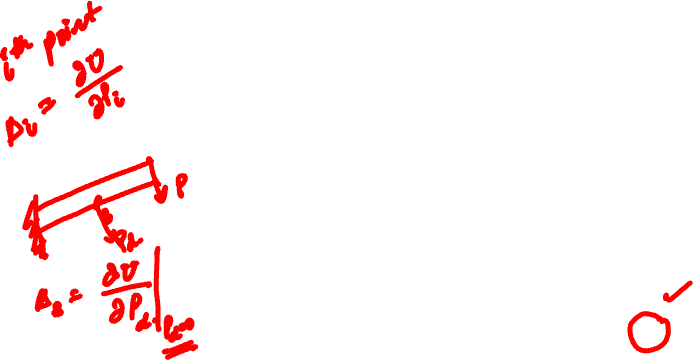 ith point
Δi = ∂U/∂Pi
P
B
Pd
ΔB = ∂U/∂Pd | Pd=0